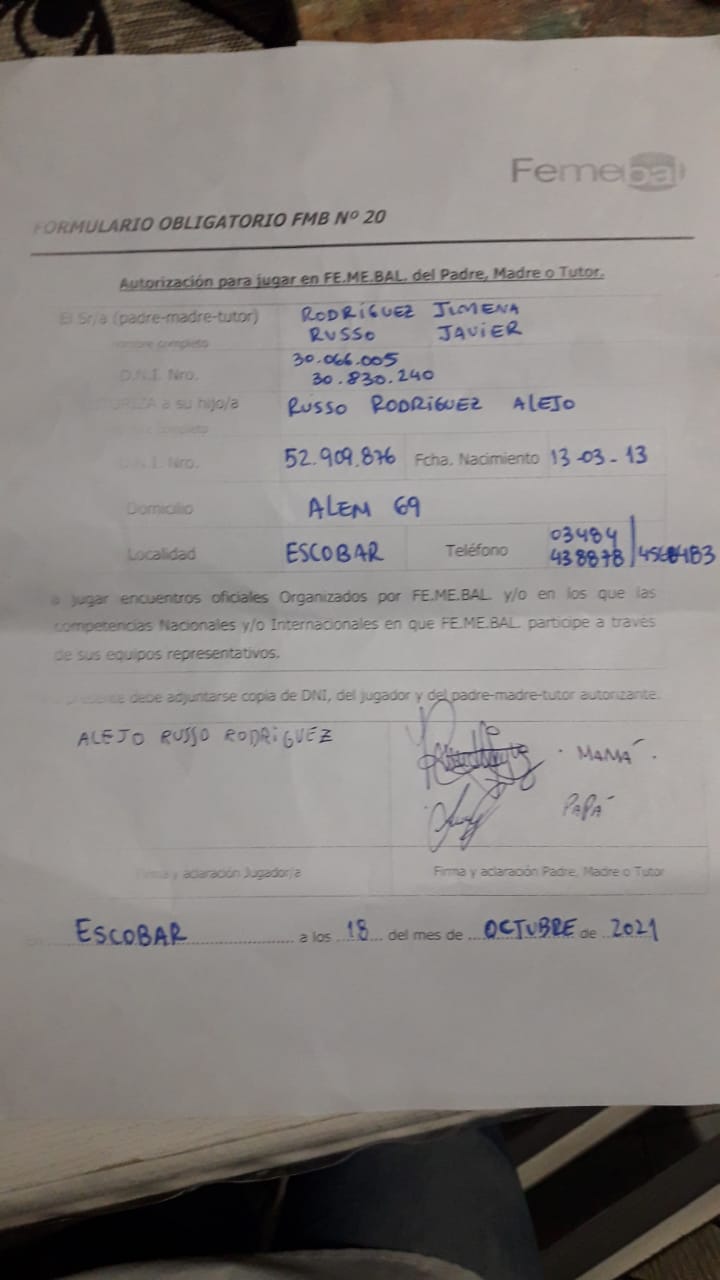 Femebal
FORMULARIO OBLIGATORIO FMB Nº 20
Autorización para jugar en FE.ME.BAL. del Padre, Madre o Tutor.
El Sr/a (padre-madre-tutor) RODRÍGUEZ JIMENA
RUSSO JAVIER
nombre completo
D.N.I. Nro. 30.066.005
30.830.240
AUTORIZA a su hijo/a RUSSO RODRÍGUEZ ALEJO
completo
D.N.I. Nro. 52.909.876 Fcha. Nacimiento 13-03-13
Domicilio ALEM 69
Localidad ESCOBAR Teléfono 03484
438878/
a jugar encuentros oficiales Organizados por FE.ME.BAL. y/o en los que las
competencias Nacionales y/o Internacionales en que FE.ME.BAL. participe a través
de sus equipos representativos.
presente debe adjuntarse copia de DNI, del jugador y del padre-madre-tutor autorizante.
ALEJO RUSSO RODRÍGUEZ
MAMÁ
PAPÁ
Firma y aclaración Jugador/a Firma y aclaración Padre, Madre o Tutor
ESCOBAR a los 18 del mes de OCTUBRE de 2021